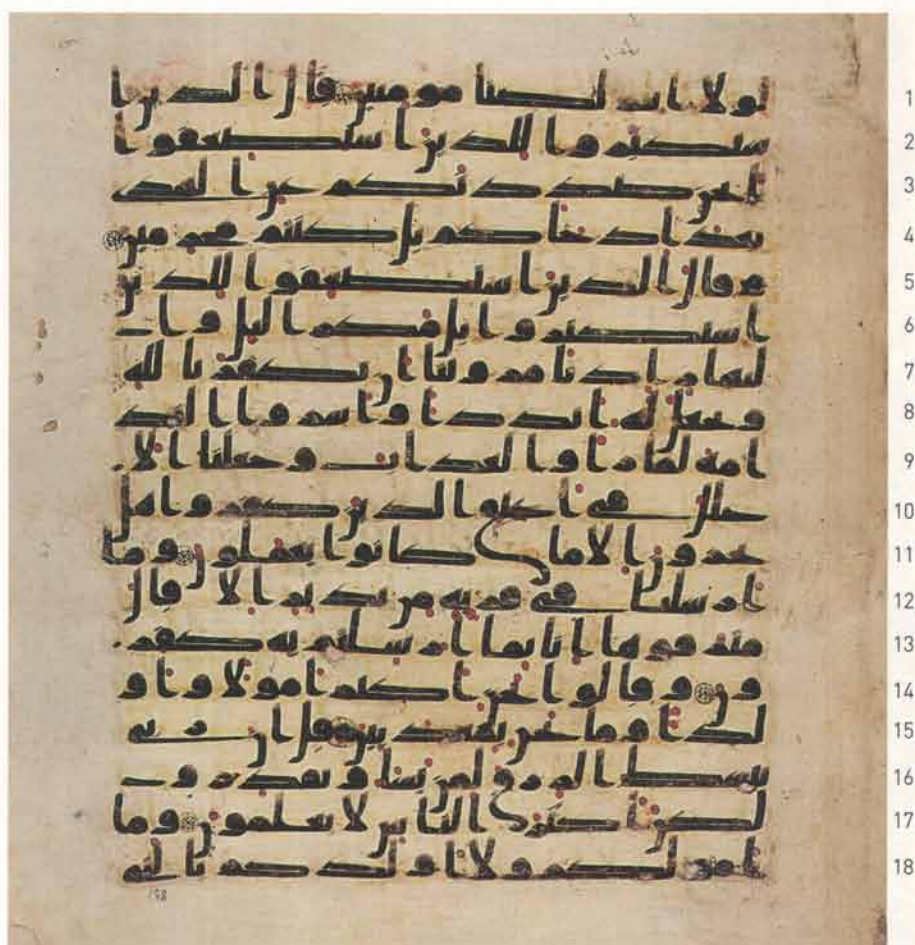 لولا انتم لكنا مومنين قال الذين ا 1
ستكبروا للذين استضعفوا ا 2
نحن صددنكم عن الهدى 3
بعد اذ جاكم بل كنتم مجرمين 4
و قال الذين استضعفوا للذين 5
استكبروا بل مكر اليل وا 6
لنهار اذ تامروننا ان نكفر بالله 7
ونجعل له اندادا واسروا الند 8
امة لما راوا العذاب وجعلنا الا 9
غلل في اعناق الذين كفروا هل 10
يجزون الا ما كانوا يعملون وما 11
ارسلنا في قرية من نذير الا قال 12
مترفوها انا بما ارسلتم به كفر 13
ون وقالوا نحن اكثر امولا واو 14
لدا وما نحن بمعذبين قل ان ربي 15
يبسط الرزق لمن يشا ويقدر و 16
لكن اكثر الناس لا يعلمون وما 17
امولكم ولا اولدكم بالتي 18